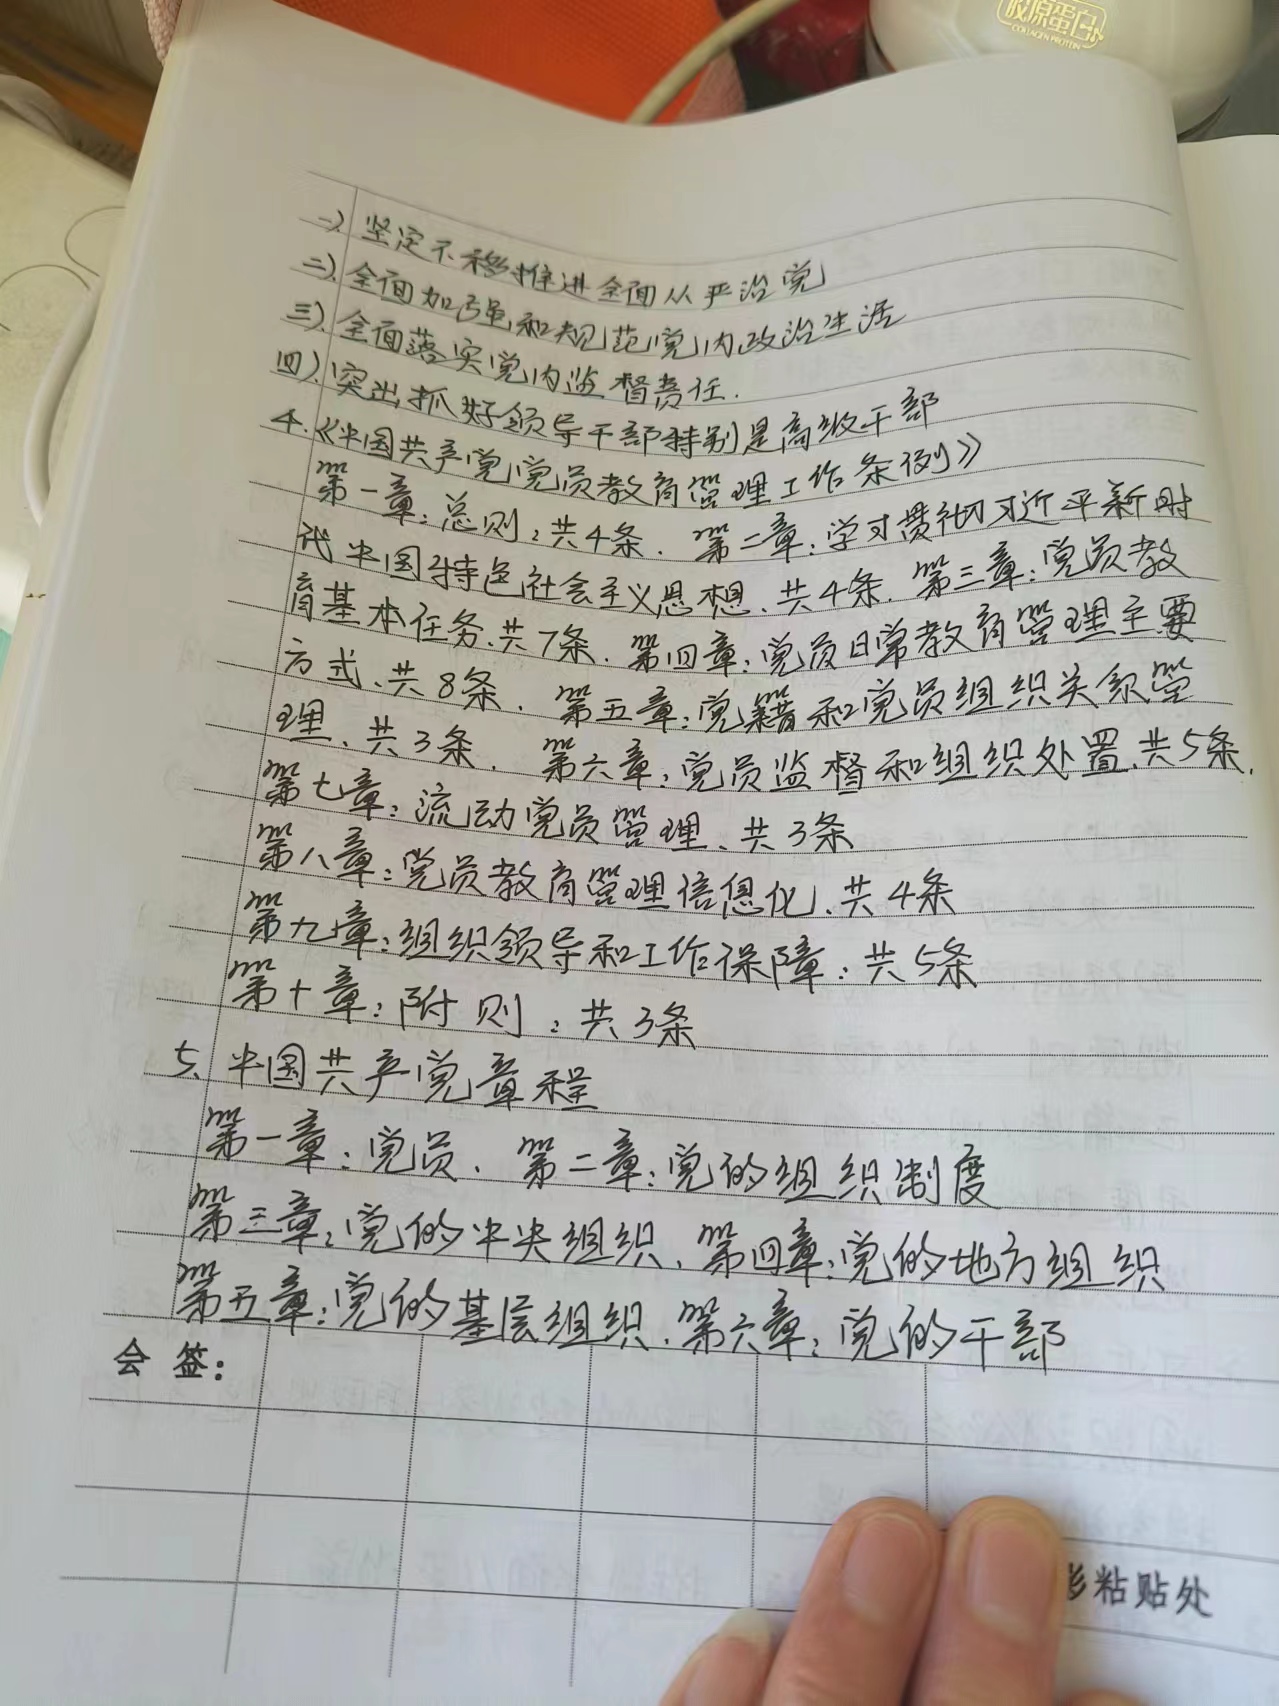 胶原蛋白
COLLAGEN PROTEIN
一)、坚定不移推进全面从严治党
二)、全面加强和规范党内政治生活
三)、全面落实党内监督责任.
四)、突出抓好领导干部特别是高级干部
4.《中国共产党党员教育管理工作条例》
第一章:总则:共4条. 第二章:学习贯彻习近平新时
代中国特色社会主义思想、共4条. 第三章:党员教
育基本任务、共7条. 第四章:党员日常教育管理主要
方式、共8条. 第五章:党籍和党员组织关系管
理、共3条. 第六章:党员监督和组织处置、共5条.
第七章:流动党员管理、共3条
第八章:党员教育管理信息化、共4条
第九章:组织领导和工作保障:共5条
第十章:附则:共3条
5、中国共产党章程
第一章:党员、第二章:党的组织制度
第三章:党的中央组织、第四章:党的地方组织
第五章:党的基层组织、第六章:党的干部
会 签:
粘贴处